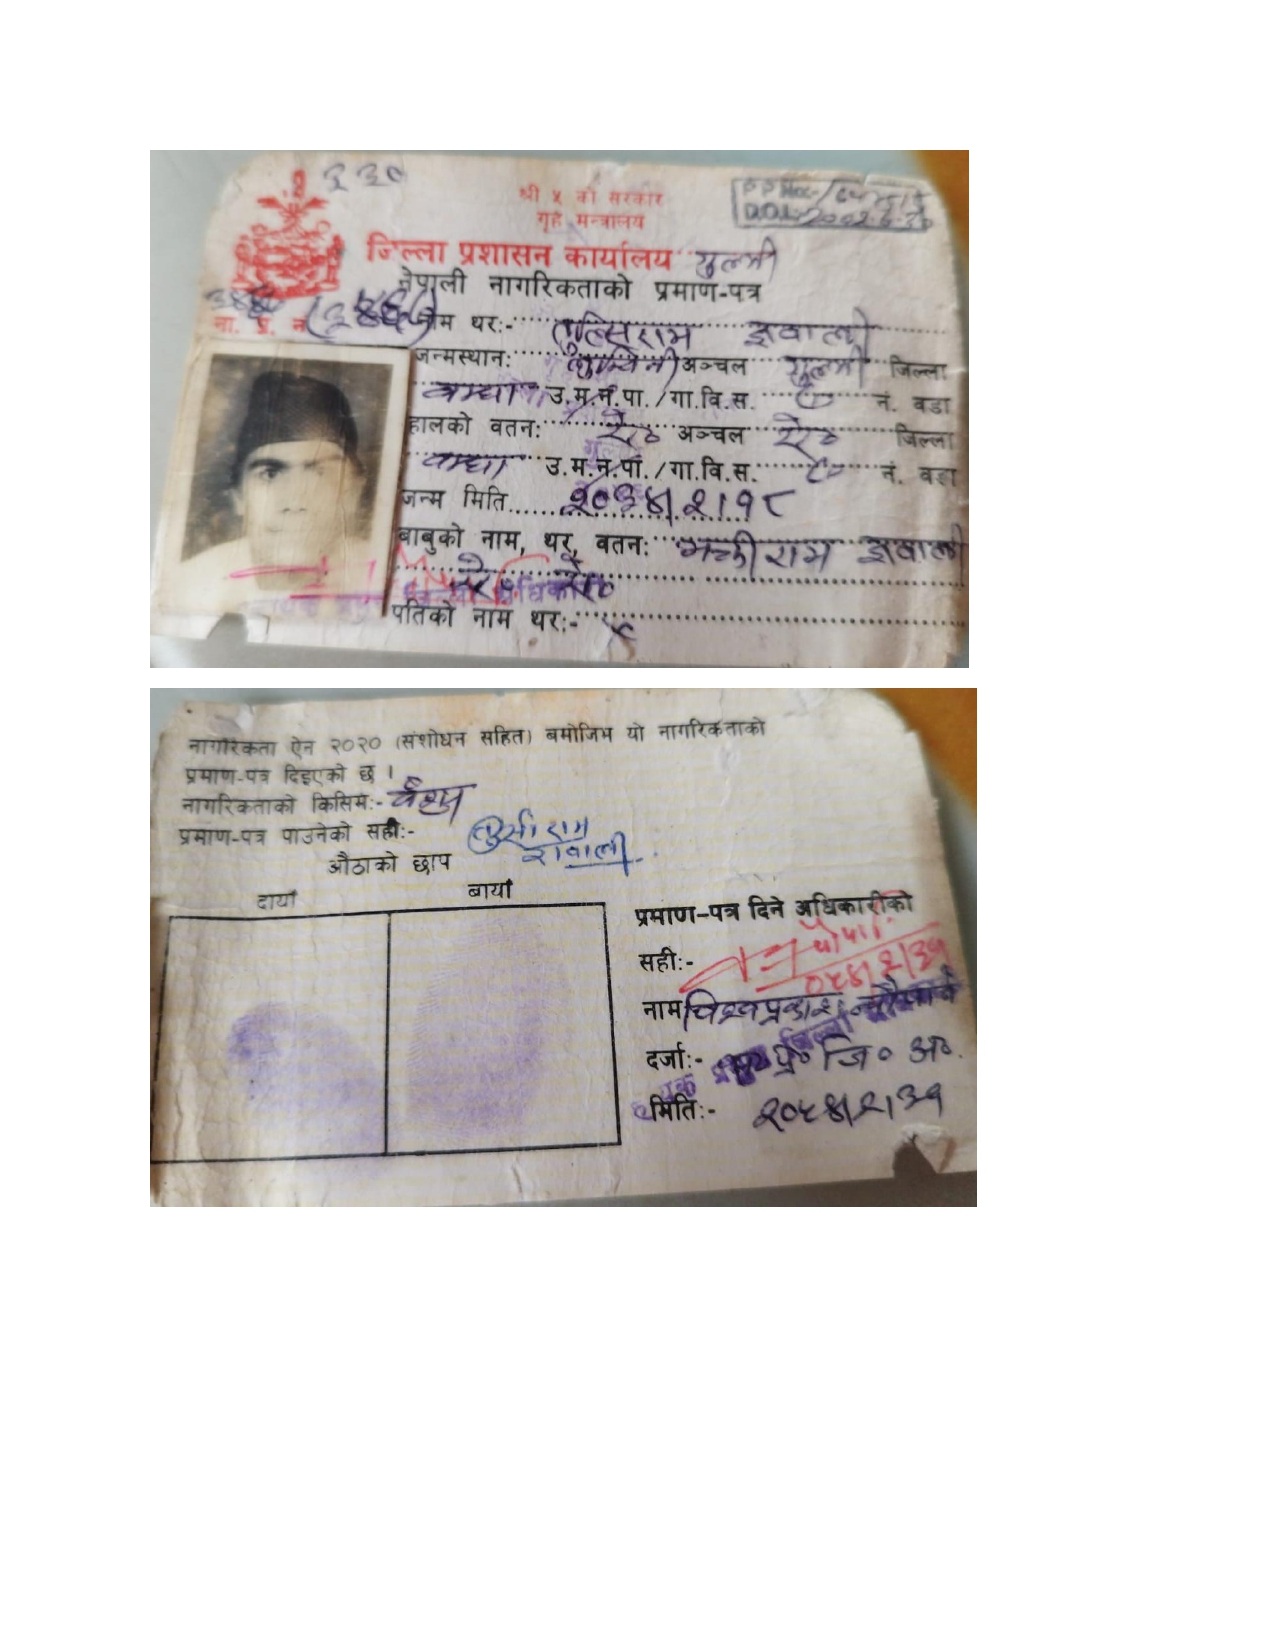 ३३०
श्री ५ को सरकार
गृह मन्त्रालय
जिल्ला प्रशासन कार्यालय गुल्मी
नेपाली नागरिकताको प्रमाण-पत्र
ना. प्र. नं
नाम थर:- तुल्सिराम ज्ञवाली
जन्मस्थान: लुम्बिनी अञ्चल गुल्मी जिल्ला
वम्घा उ.म.न.पा./गा.वि.स. नं. वडा
हालको वतन: ऐ० अञ्चल ऐ० जिल्ला
वम्घा उ.म.न.पा./गा.वि.स. नं. वडा
जन्म मिति २०३४।२।१८
बाबुको नाम, थर, वतन: राम ज्ञवाली
पतिको नाम थर:-
नागरिकता ऐन २०२० (संशोधन सहित) बमोजिम यो नागरिकताको
प्रमाण-पत्र दिइएको छ ।
नागरिकताको किसिम:- वंशज
प्रमाण-पत्र पाउनेको सही:-
औठाको छाप
दायाँ बायाँ
प्रमाण-पत्र दिने अधिकारीको
सही:-
नाम
दर्जा:- प्र० जि० अ०
मिति:- २०५४।२।३१